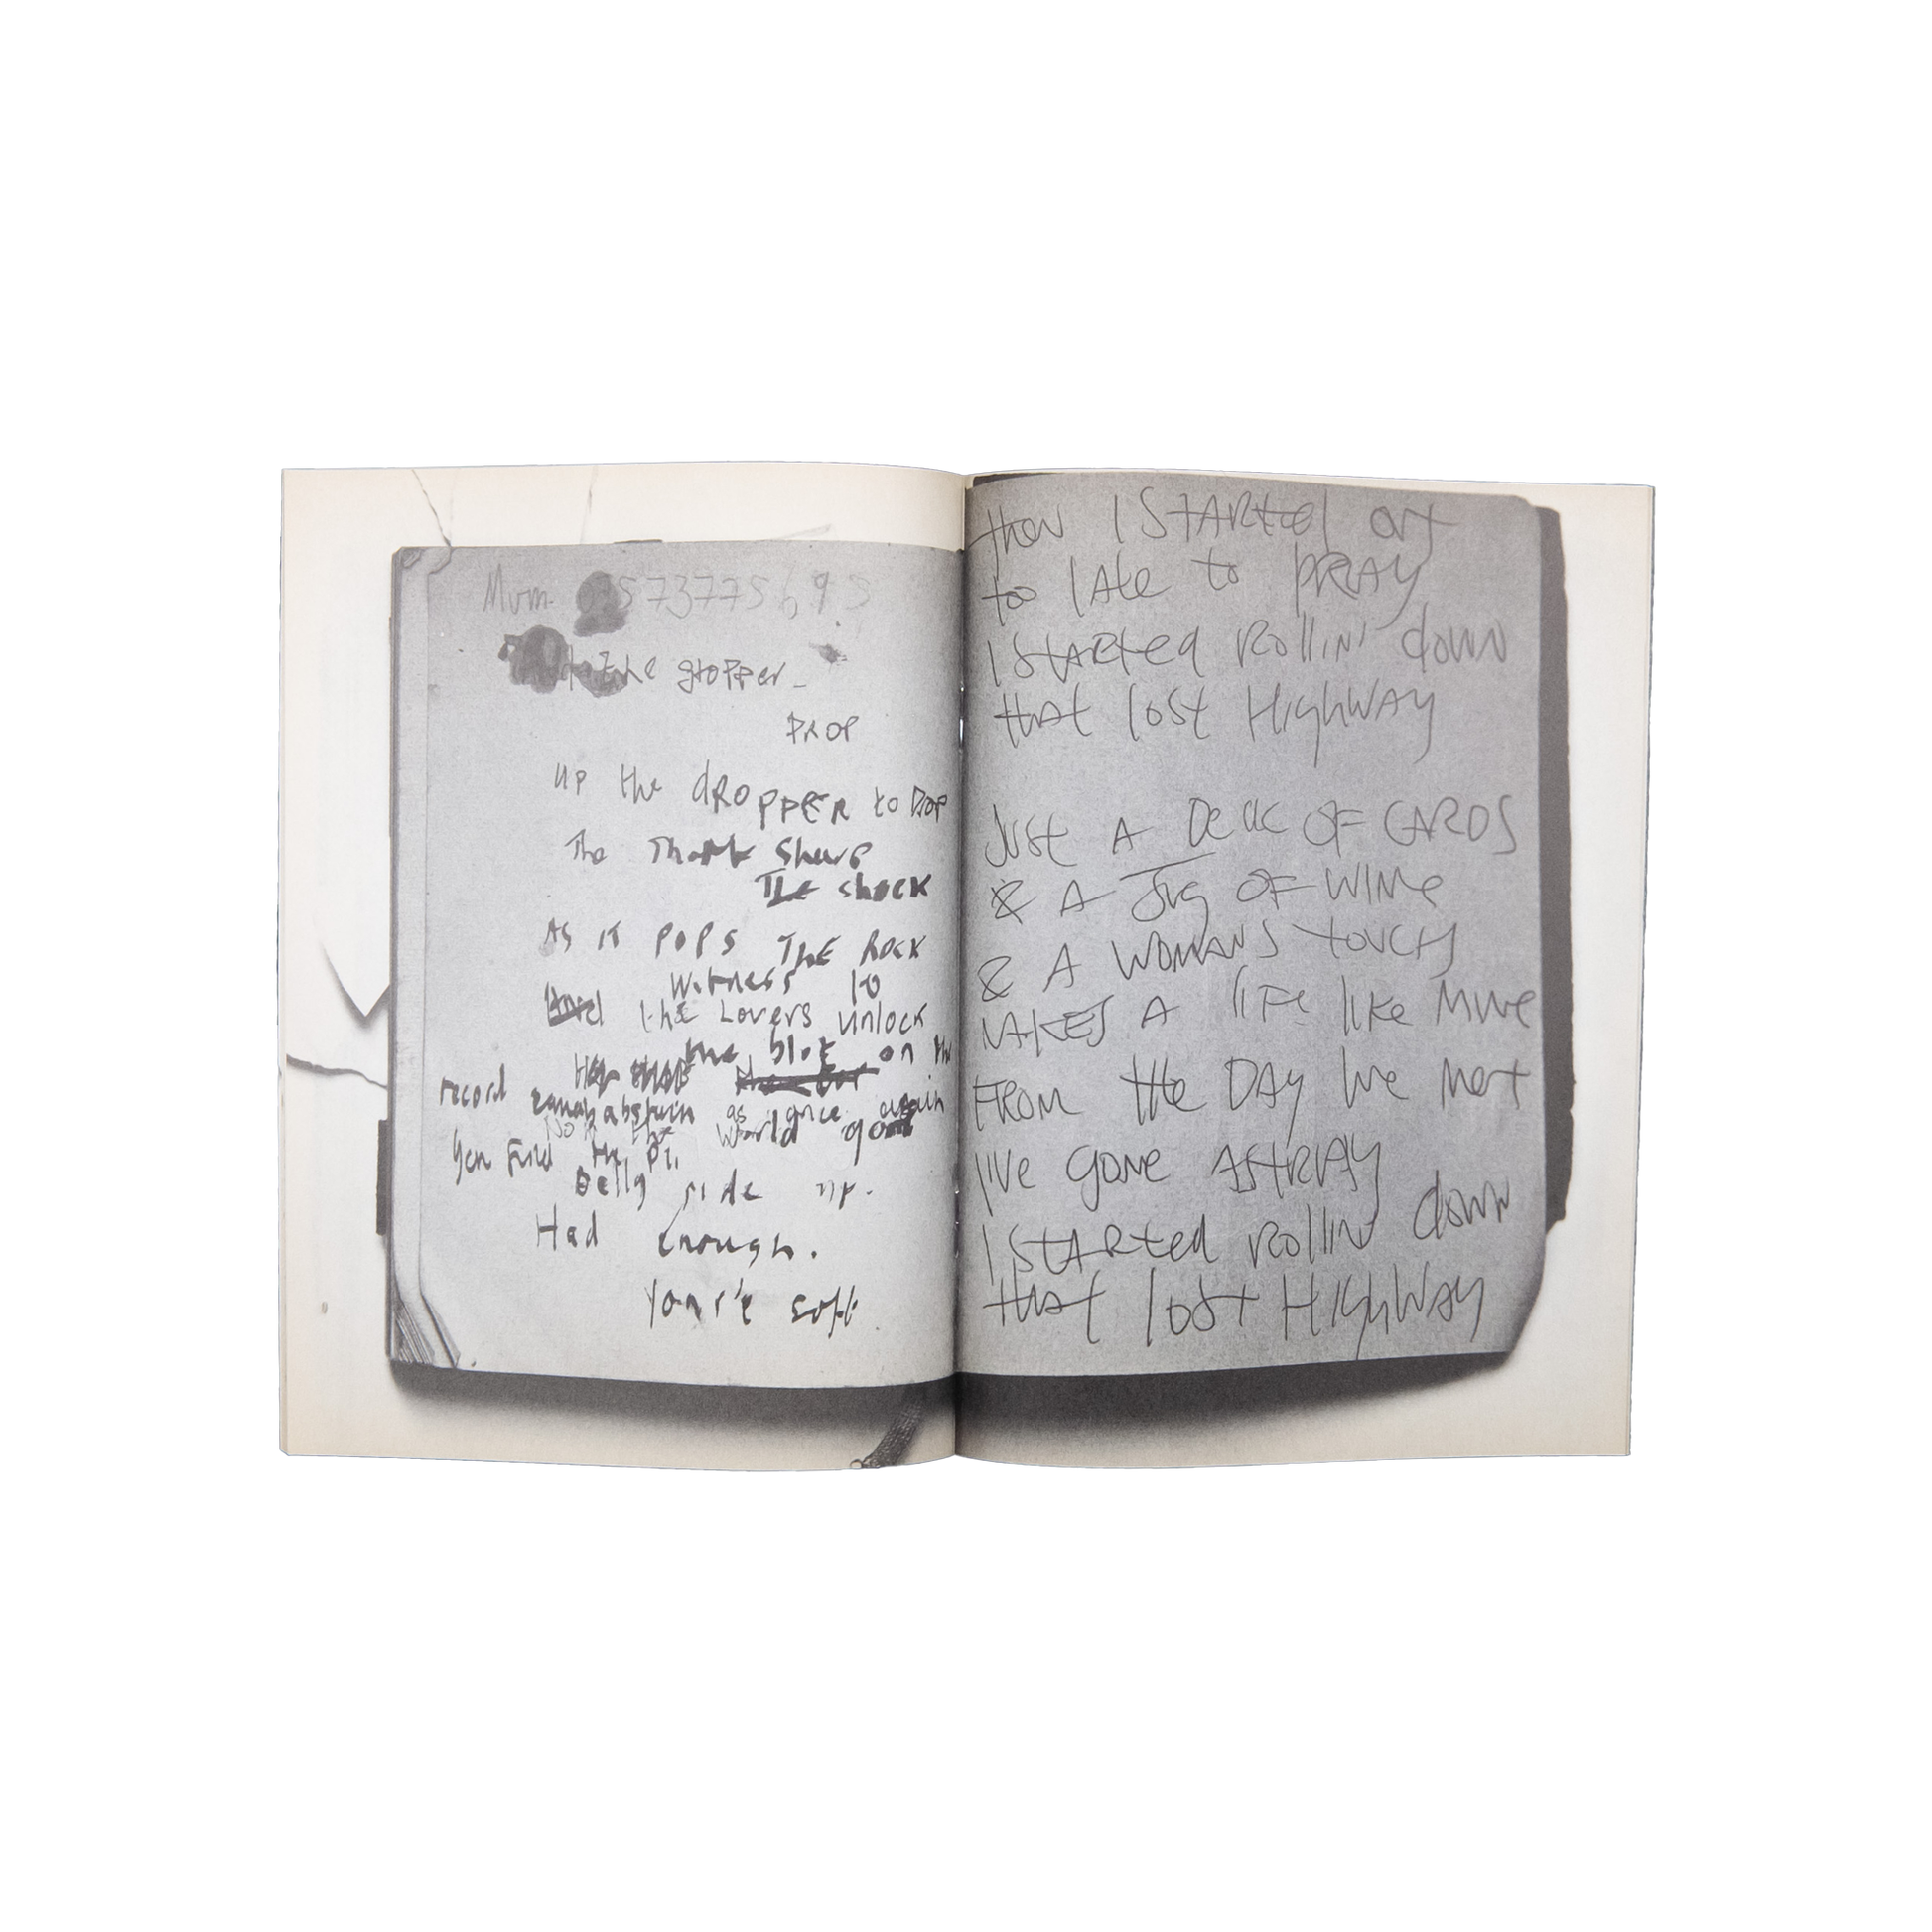 Mum 573775693
the stopper_
DROP
up the dROPPER to Drop
The Sharp
The shock
As it pops THE ROCK
Witness to
And the Lovers unlock
the blot on the
record as once again
World goes
You find the
Belly side up.
Had Enough.
You're soft
then I STARted out
too lAte to PRAY
I StARted Rollin' down
that lost HighWAY
Just A Deck OF CARDS
& A Jug OF WINe
& A WOMANS touch
MAKES A liFe like MINe
FROM the DAy We Met
I'Ve gone AStRAY
I StARted Rollin down
that lost HighWAy